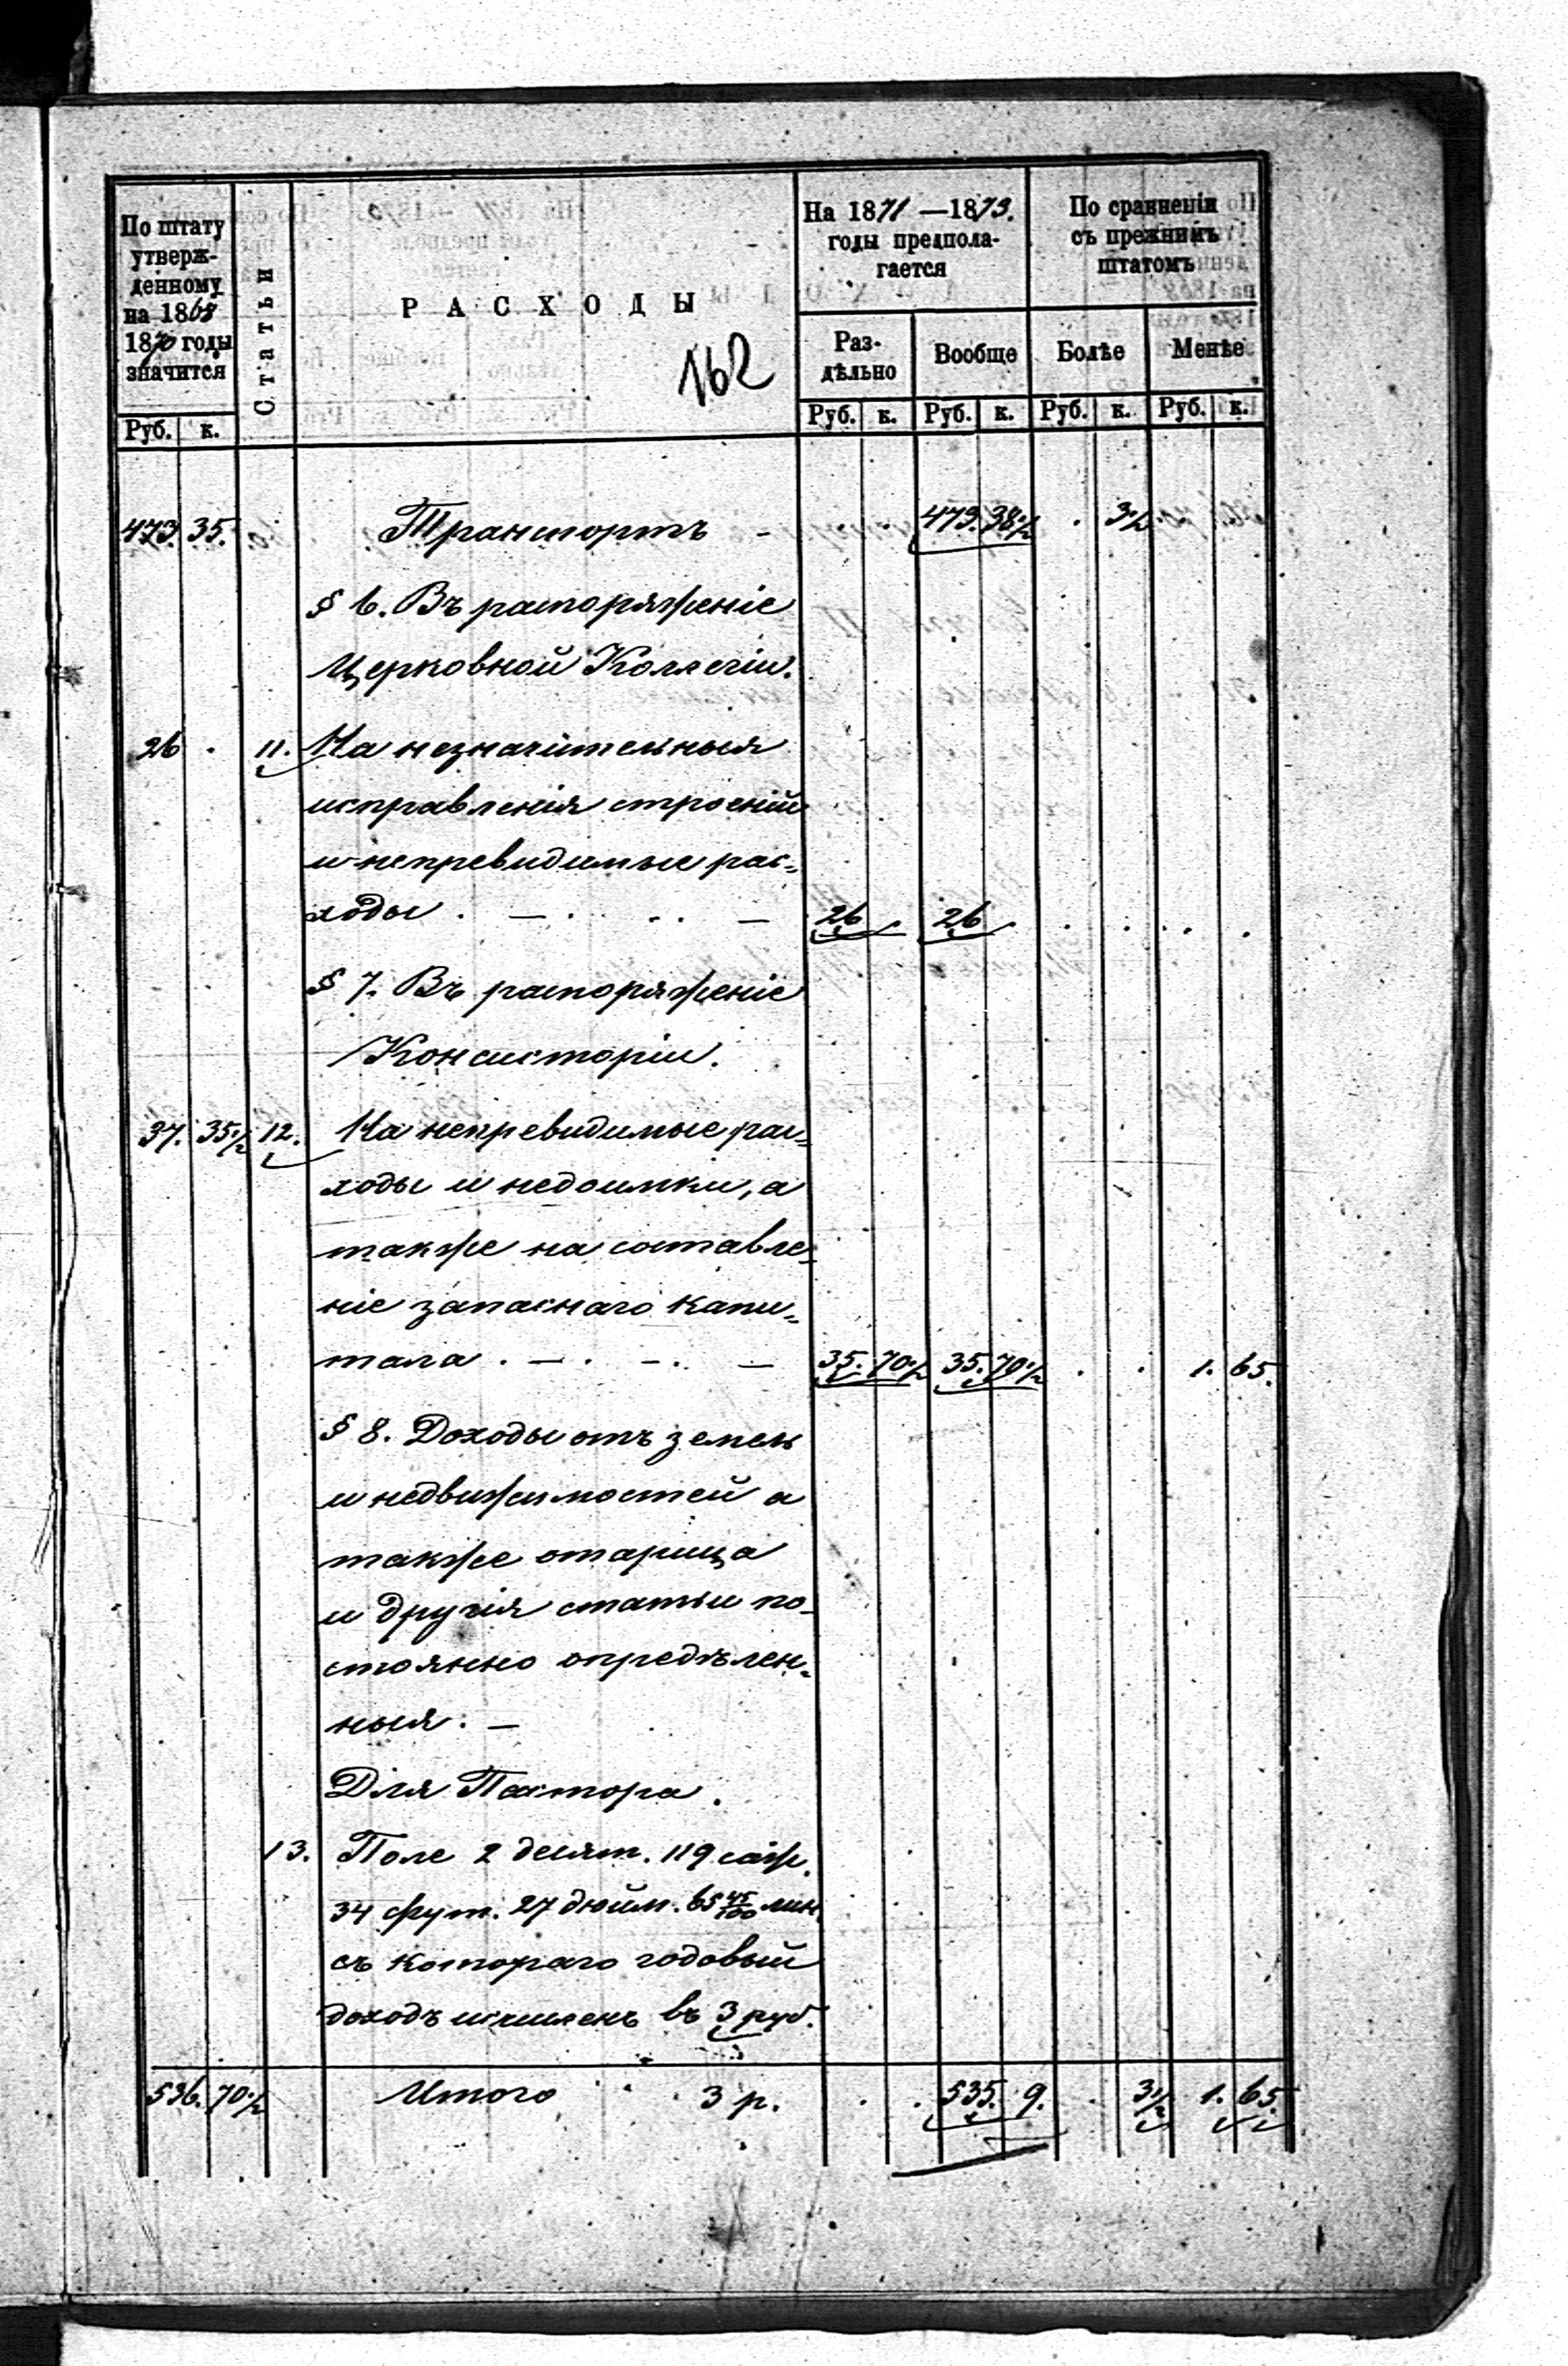 По штату
утверж-
денному
на 1868
1870 годы
значится
Статьи
РАСХОДЫ
162
На 1871 —1873.
годы предпола-
гается
По сравненію
съ прежнимъ
штатомъ
Раз-
дѣльно
Вообще
Болѣе
Менѣе
Руб. к.
Руб. к. Руб. к. Руб. к. Руб. к.
473. 35. Транспортъ - 473. 38 1/2 . 3 1/2
§ 6. Въ распоряженіе
Церковной Коллегіи.
26 . 11. На незначительныя
исправленія строеній
и непревидимые рас=
ходы . — . . . — 26 . 26 . . . . .
§ 7. Въ распоряженіе
Консисторіи.
37. 35 1/2 12. На непревидимые рас=
ходы и недоимки, а
также на составле=
ніе запаснаго капи=
тала . — . — . — 35. 70 1/2 35. 70 1/2 . . 1. 65.
§ 8. Доходы отъ земель
и недвижимостей а
также
и другія статьи по-
стоянно опредѣлен=
ныя. —
Для Пастора.
13. Поле 2 десят. 119 саж.
34 фут. 27 дюйм. 65 45/100 лин.
съ котораго годовый
доходъ исчисленъ въ 3 руб.
536. 70 1/2 Итого . . 3 р. . . 535. 9. . 3 1/2 1. 65.